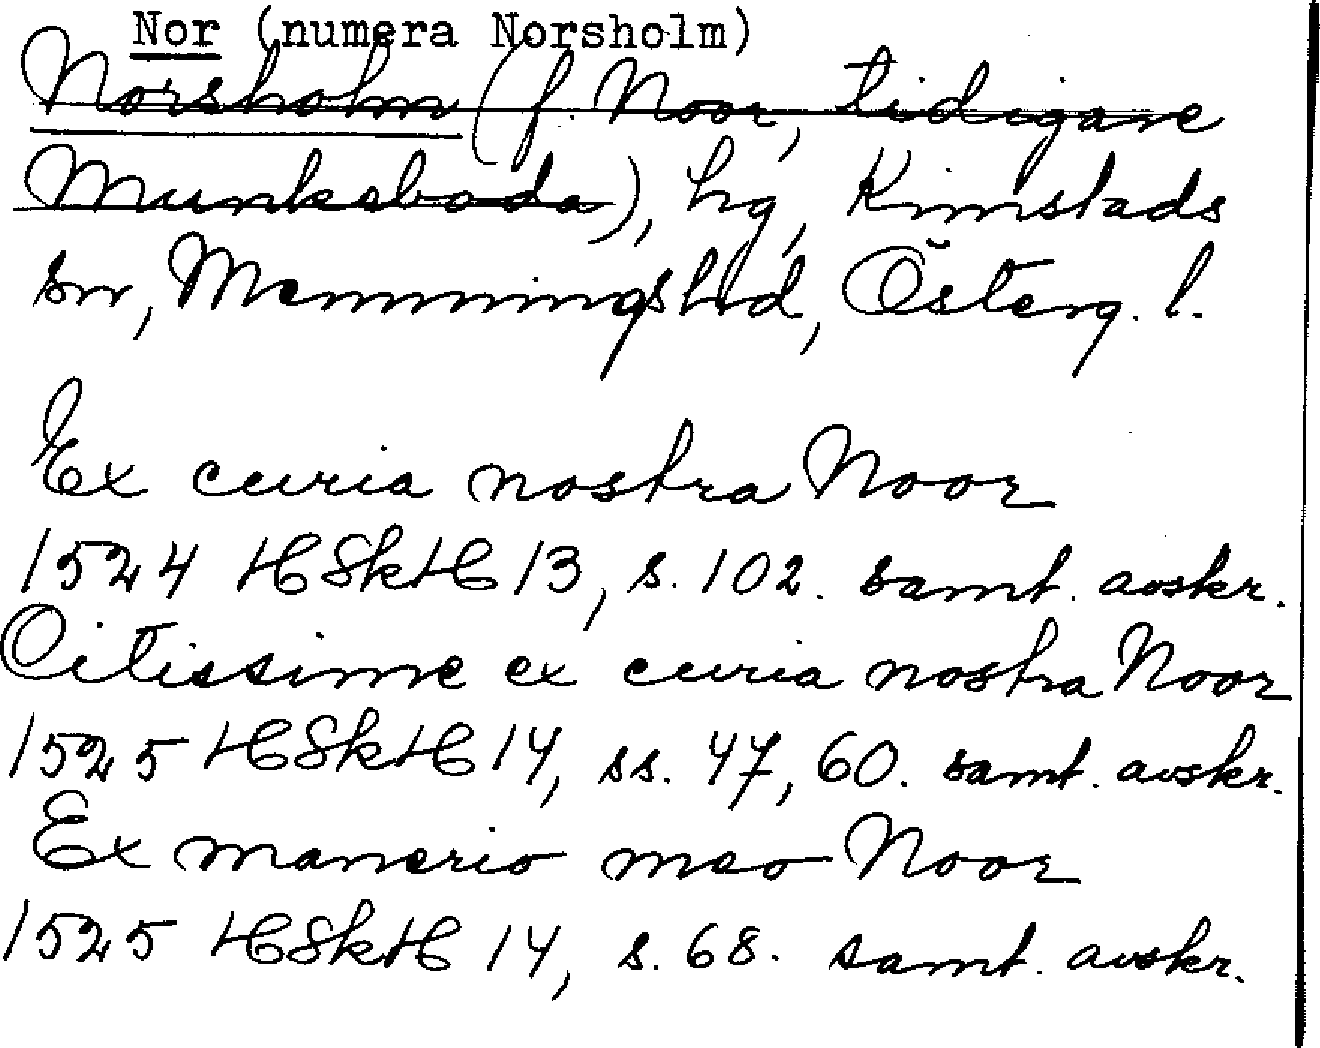 Nor (numera Norsholm)
Norsholm (f. Noor, tidigare
Munkaboda), hg, Kimstads
sn, Memmingshd, Österg. l.
Ex curia nostra Noor
1524 HSkH 13, s. 102. samt. avskr.
Citissime ex curia nostra Noor
1525 HSkH 14, ss. 47, 60. samt. avskr.
Ex manerio meo Noor
1525 HSkH 14, s. 68. samt. avskr.